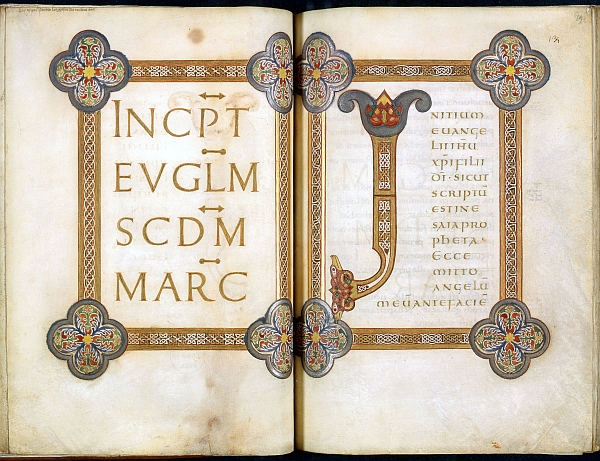 INCP̄T
EVGL̄M
SCDM̄
MARC̄
I
NITIUM
EUANGE
LII IHU
XP̄I FILII
DI · SICUT
SCRIPTŪ
EST IN E
SAIA PRO
PHETA ·
ECCE
MITTO
ANGELŪ
MEŪ ANTE FACIĒ